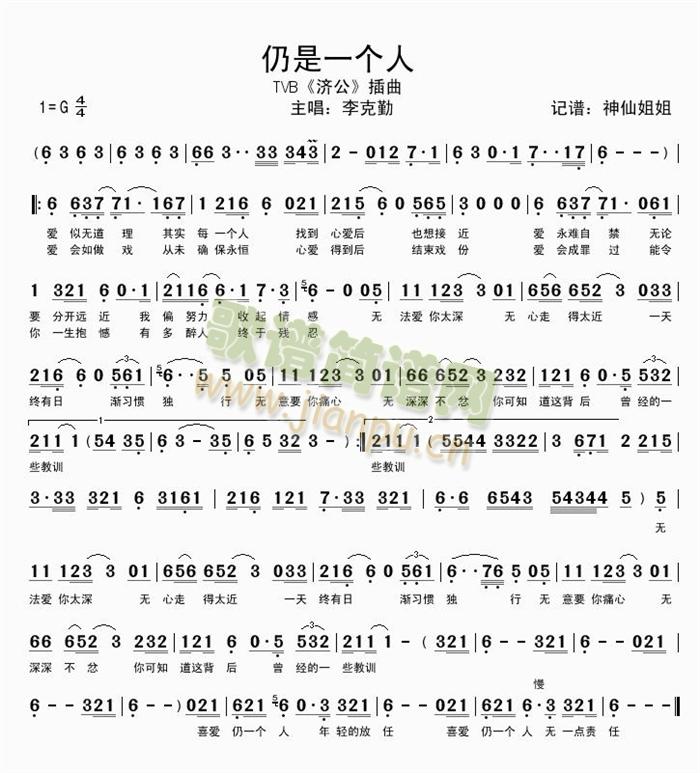 仍是一个人
TVB《济公》插曲
1=G 4/4 主唱：李克勤 记谱：神仙姐姐
( 6 3 6 3 | 6 3 6 3 | 66 3·· 33 343 | 2 - 012 7·1 | 6·3 01 7··17 | 6 - - - )
‖: 6 637 71·167 | 1 216 6 021 | 215 6 0 565 | 3 0 0 0 | 6 637 71·061 |
爱 似无道 理 其实 每 一个人 找到 心爱后 也想接 近 爱 永难自 禁 无论
爱 会如做 戏 从未 确 保永恒 心爱 得到后 结束戏 份 爱 会成罪 过 能令
1 321 6 0·1 | 2116 6·1 7·3 | 6 - 0 05 | 11 123 3 01 | 656 652 3 033 |
要 分开远 近 我 偏 努力 收 起 情 感 无 法爱 你太深 无 心走 得太近 一天
你 一生抱 憾 有 多 醉人 终 于 残 忍
216 6 0 561 | 6·· 5 5 05 | 11 123 3 01 | 66 652 3 232 | 121 6 0·5 532 |
终有日 渐习惯 独 行 无 意要 你痛心 无 深深 不 忿 你可知 道这背 后 曾 经的一
1 2
211 1 ( 54 35 | 6 3 - 35 | 6 5 32 3 - ) :‖ 211 1 ( 5544 3322 | 3 671 2 215 |
些教训 些教训
3·33 321 6 3161 | 216 121 7·33 321 | 6·6 6543 54344 5 ) 5 |
无
11 123 3 01 | 656 652 3 033 | 216 6 0 561 | 6··76 5 05 | 11 123 3 01 |
法爱 你太深 无 心走 得太近 一天 终有日 渐习惯 独 行 无 意要 你痛心 无
66 652 3 232 | 121 6 0·5 532 | 211 1 - ( 321 | 6 - - 321 | 6 - - 0221 |
深深 不 忿 你可知 道这背 后 曾 经的一 些教训
慢
6 - - 321 | 6 - - ) 021 | 621 6 0·3 221 | 6 - - 0221 | 621 6·3 321 | 6 - - - ‖
喜爱 仍一个 人 年 轻的放 任 喜爱 仍一个 人 无 一点责 任
歌谱简谱网
www.jianpu.cn